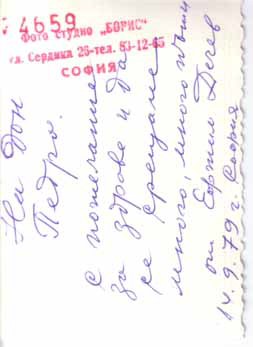 4659
Фото студио „БОРИС"
ул. Сердика 26-тел. 83-12-65
СОФИЯ
На Дон
Педро.
С пожелание
за здраве и да
се срещаме
много, много пъти
от Евтим Десев
14.9.79 г. София